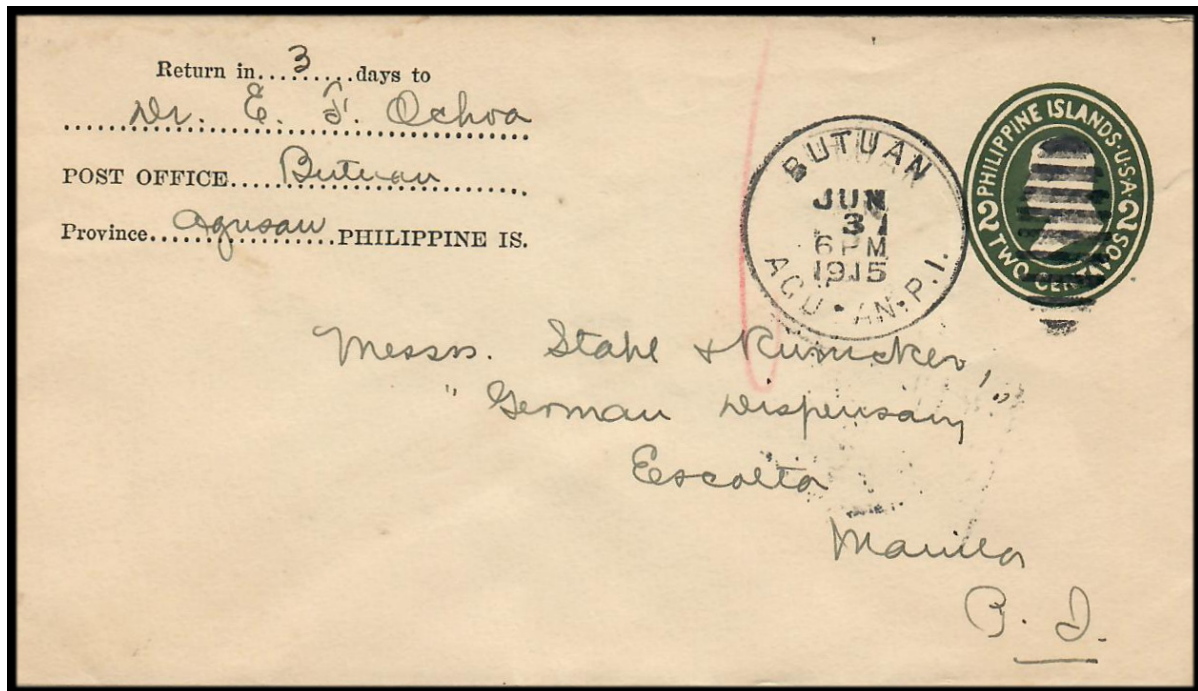 Return in....3.....days to
Dr. E. F. Ochoa
POST OFFICE.... Butuan
Province.... Agusan ....PHILIPPINE IS.
BUTUAN
JUN
31
6 PM
1915
AGU AN. P.I.
PHILIPPINE ISLANDS·U·S·A·
2 2
TWO CENTAVOS
Messrs. Stahl &
"German Dispensary"
Escolta
Manila
P. I.